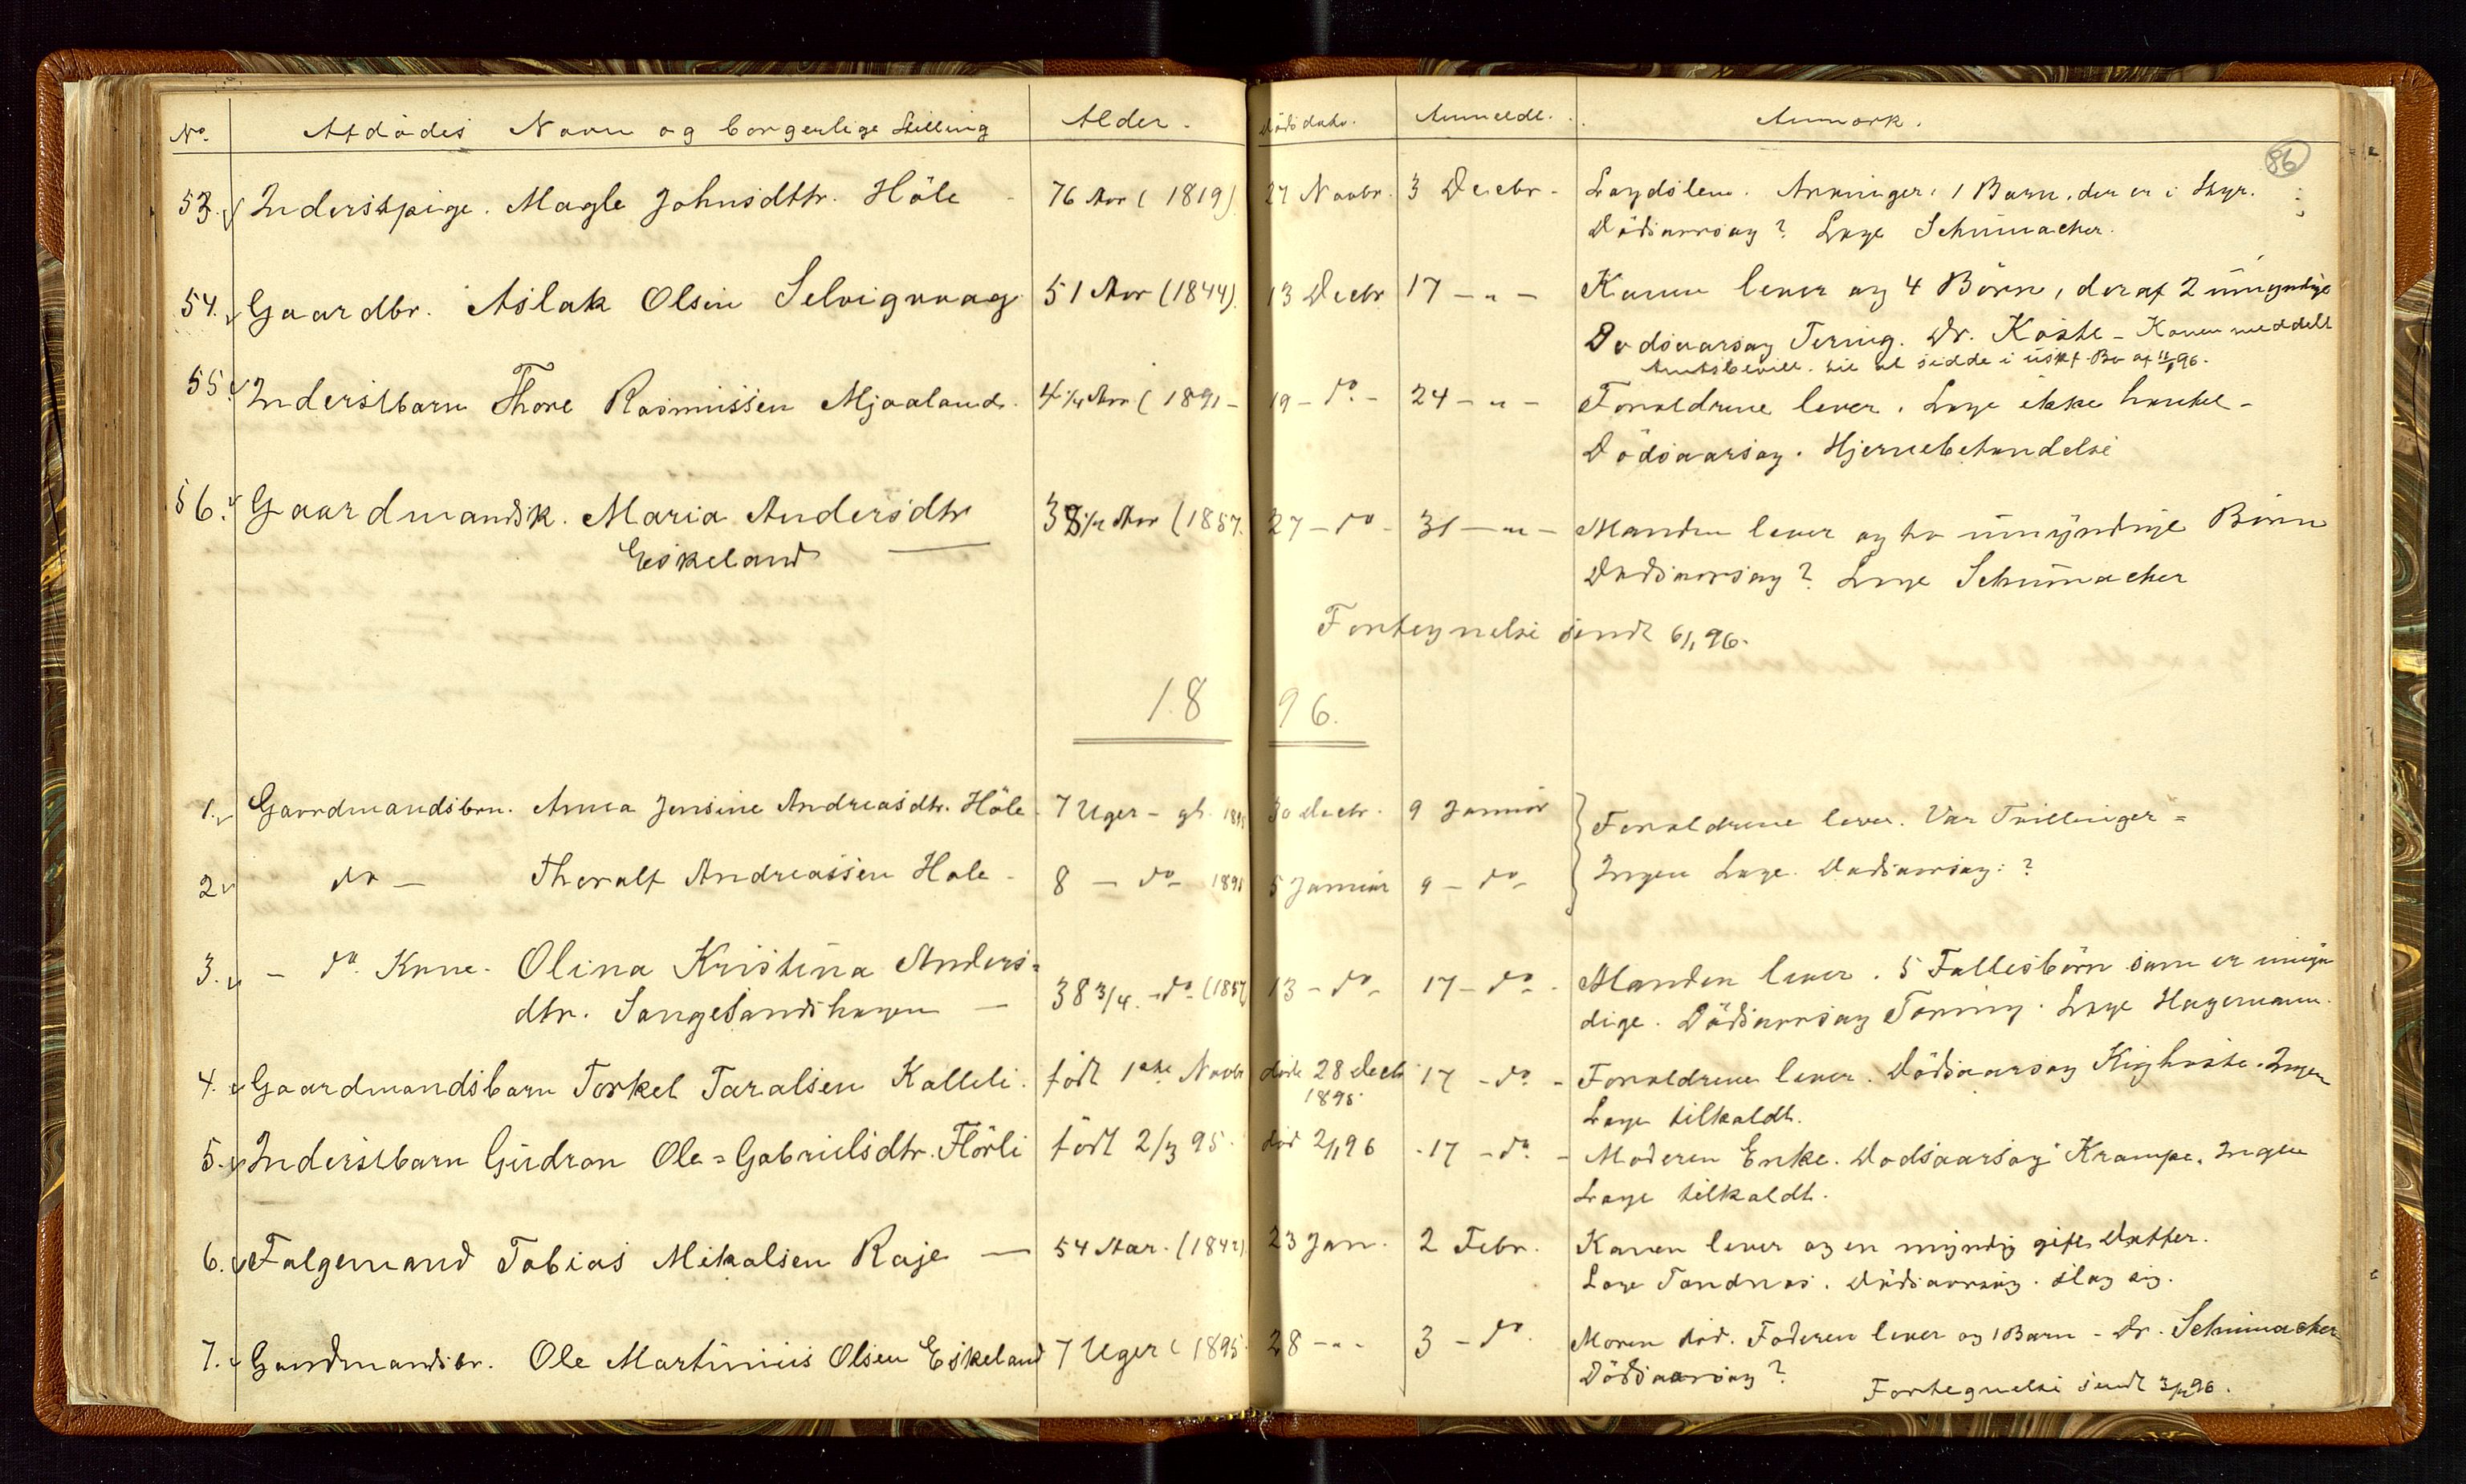 No. Afdödes Navn og borgerlige Stilling Alder. Dödsdato. Anmeldt. Anmærk.
86
53. Inderstpige. Magle Johnsdttr. Höle - 76 Aar (1819) 27 Novbr. 3 Decbr - Lægdslem. Arvinger: 1 Barn, der er i Styr.
Dödsaarsag? Læge Schumacher.
54. Gaardbr. Aslak Olsen Selvigvaag 51 Aar (1844). 13 Decbr 17 - " - Konen lever og 4 Börn, deraf 2 umyndige
Dødsaarsag Tæring. Dr. Koste - Konen meddelt
Amtsbevill. til at sidde i uskft. Bo af 11/1 96.
55. Inderstbarn Thore Rasmussen Mjaaland. 4 1/4 Aar (1891 - 19 - do - 24 - " - Forældrene lever. Læge ikke hentet -
Dödsaarsag. Hjernebetændelse
56. Gaardmandsk. Maria Andersdtr 38 1/2 Aar (1857. 27 - do - 31 - " - Manden lever og to umyndige Börn
Eskeland - Dødsaarsag? Læge Schumacher
Fortegnelse sendt 6/1 96.
18 96.
1. Gaardmandsbrn. Anna Jensine Andreasdtr. Höle - 7 Uger - gl. 1895 30 Decbr. 9 Januar Forældrene lever. Var Tvillinger =
2. do - Thoralf Andreassen Høle - 8 - do - 1895 5 Januar 9 - do - Ingen Læge. Dødsaarsag: ?
3. - do Kone. Olina Kristina Anders=
dtr. Songesandshagen - 38 3/4 - do (1857) 13 - do - 17 - do - Manden lever. 5 Fællesbörn som er umyn
dige. Dödsaarsag Tæring. Læge Hagemann.
4. Gaardmandsbarn Torkel Taralsen Kalleli. födt 1ste Novbr döde 28 Decbr 17 - do - Forældrene lever. Dödsaarsag Kighoste. Ingen
1895. Læge tilkaldt.
5. Inderstbarn Gudron Ole=Gabrielsdtr. Flörli födt 2/3 95. död 2/1 96 - 17 - do - Moderen Enke. Dødsaarsag Krampe. Ingen
Læge tilkaldt.
6. Følgemand Tobias Mikalsen Raje - 54 Aar. (1842) 23 Jan. 2 Febr. Konen lever og en myndig gift Datter.
Læge Tandnæs. Dödsaarsag. slag sig.
7. Gaardmandsbr. Ole Martinius Olsen Eskeland 7 Uger (1895 28 - " - 3 - do. Moren död. Faderen lever og 1 Barn - Dr. Schumacher
Dödsaarsag? Fortegnelse sendt 3/2 96.